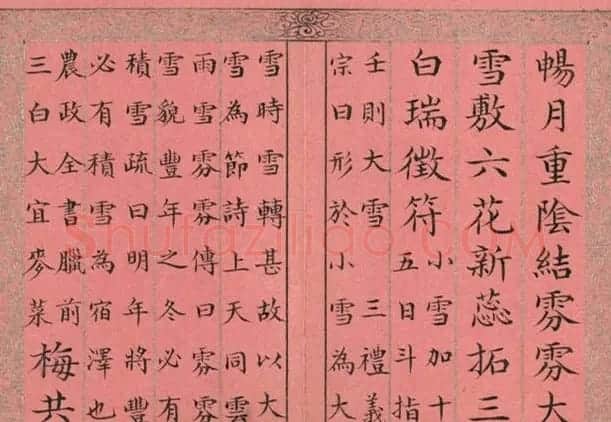 暢月重陰結雰雰大
雪敷六花新蕊拓三
白瑞徵符
小雪加十
五日斗指
壬則大雪三禮義
宗曰形於小雪為大
雪時雪轉甚故以大
雪為節詩上天同雲
雨雪雰雰傳曰雰雰
雪貌豐年之冬必有
積雪疏曰明年將豐
必有積雪為宿澤也
農政全書臘前
三白大宜麥菜
梅共
ShufaZiliao.COM